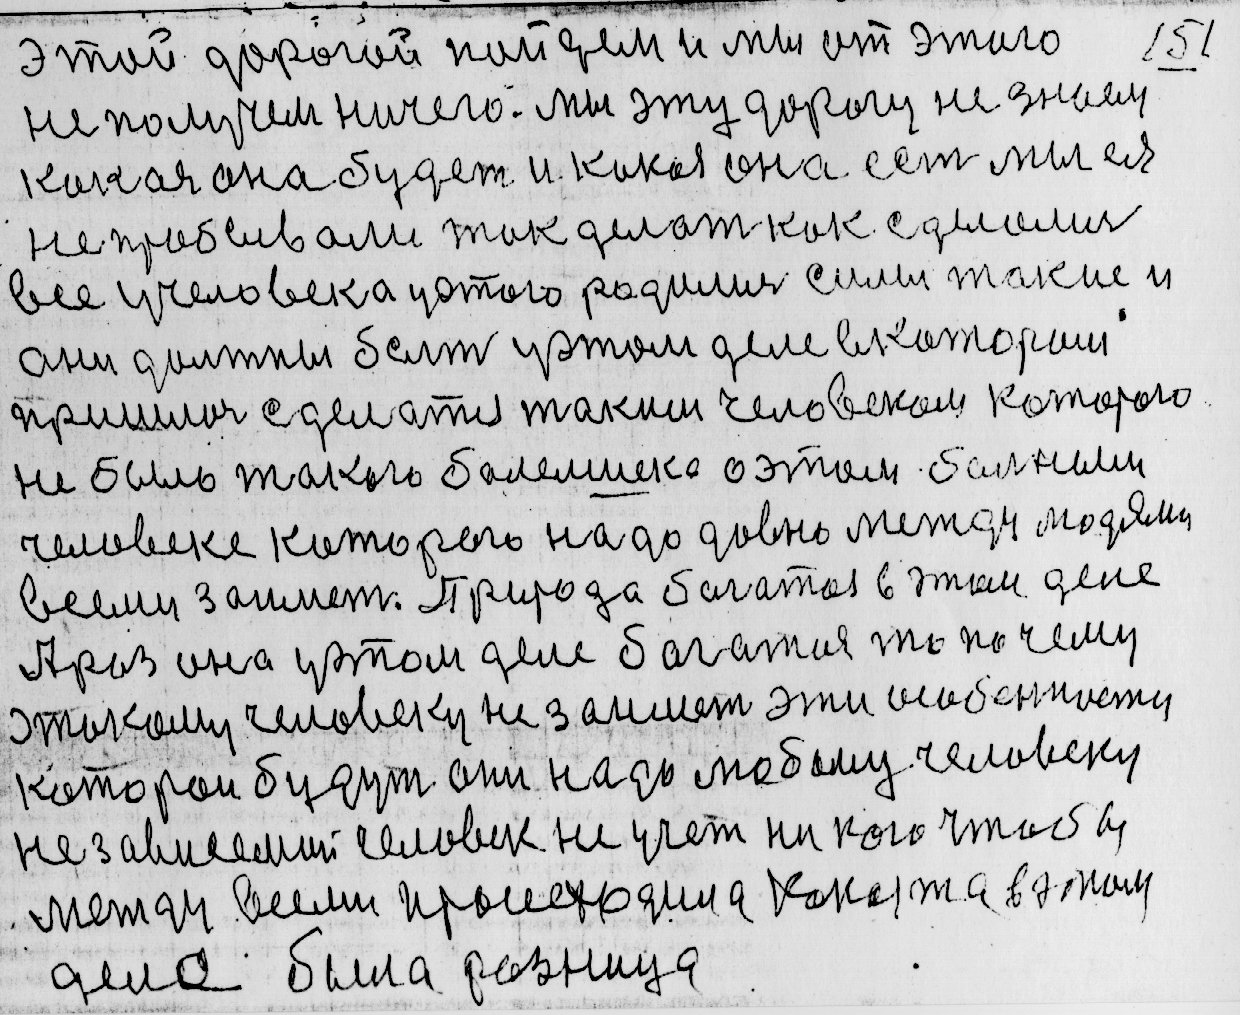 этой дорогой пойдем и мы от этого 151
не получем ничего. мы эту дорогу не знаем
какая она будет и какая она ест мы ея
не пробывали так делат как сделался
все учеловека уэтого родилися силы такие и
они должны быт уэтом деле вкоторыи
пришлося сделатся такии человеком которого
не было такого болемшека оэтом болныим
человеке которого надо довно между людями
всеми заимет. Природа богатоя в этом деле
Араз она уэтом деле богатоя то почему
этакому человеку не заимет эти особенности
которои будут они надо любому человеку
независемый человек не учет ни кого чтобы
между всеми происходила кокаята вэтом
дела была разница